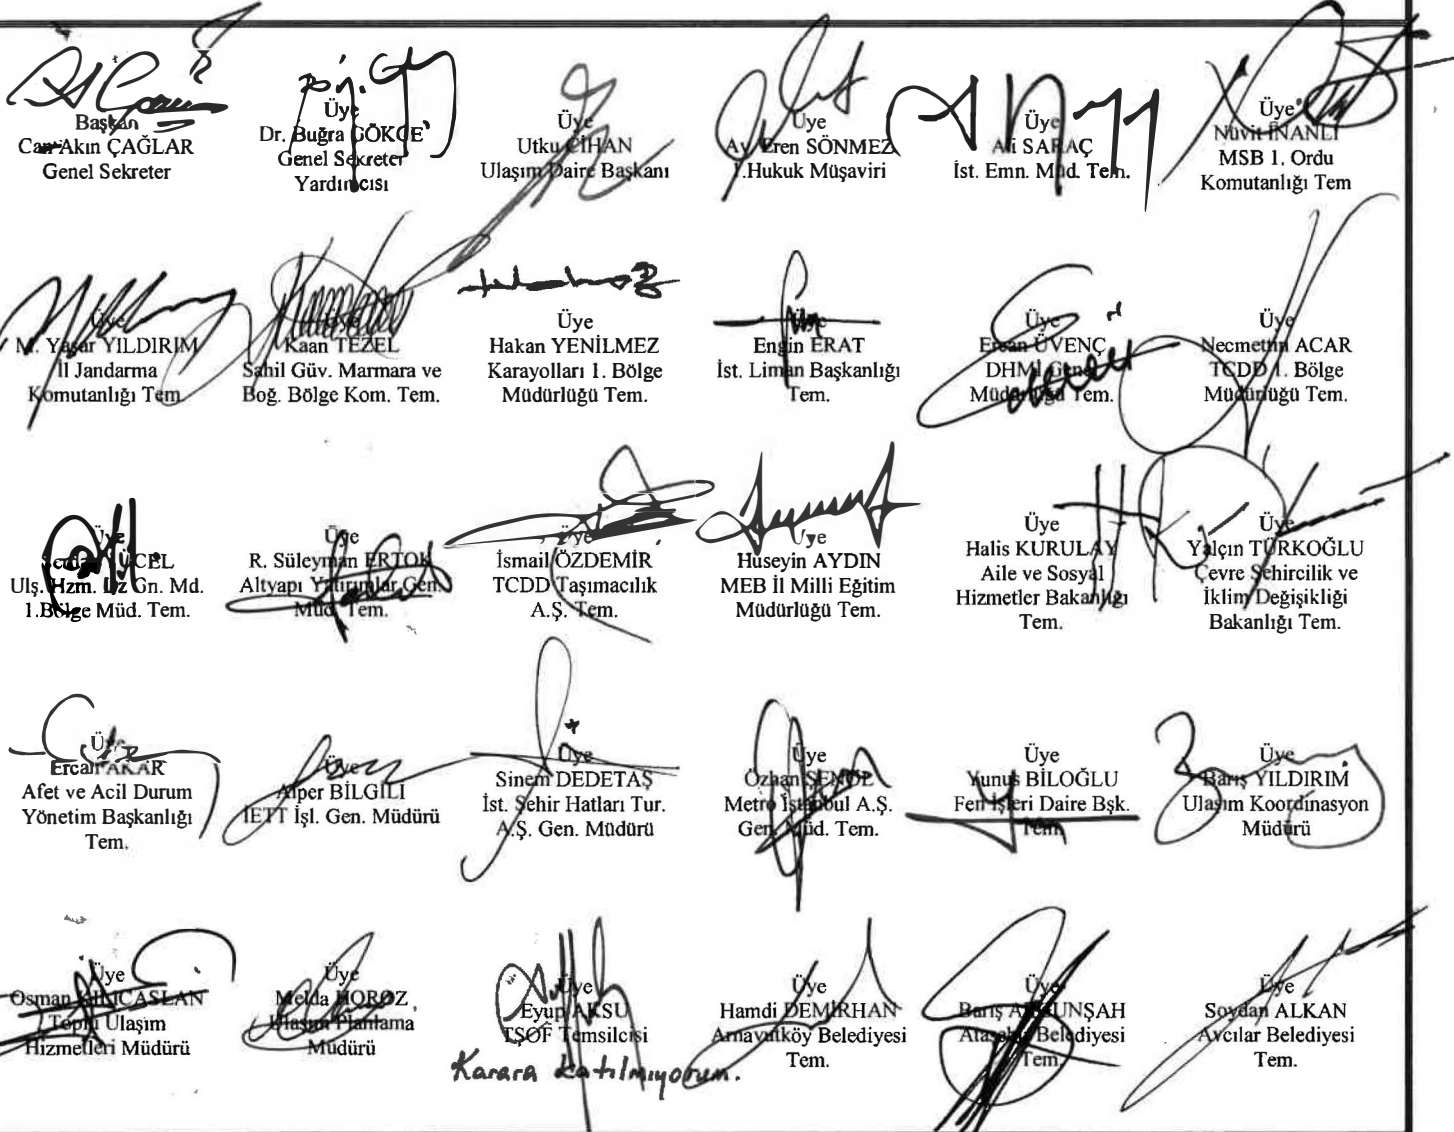 Başkan
Can Akın ÇAĞLAR
Genel Sekreter
Üye
Dr. Buğra GÖKÇE
Genel Sekreter
Yardımcısı
Üye
Utku CİHAN
Ulaşım Daire Başkanı
Üye
Av. Eren SÖNMEZ
1.Hukuk Müşaviri
Üye
Ali SARAÇ
İst. Emn. Müd. Tem.
Üye
Nüvit İNANLI
MSB 1. Ordu
Komutanlığı Tem
Üye
M. Yaşar YILDIRIM
İl Jandarma
Komutanlığı Tem
Üye
Kaan TEZEL
Sahil Güv. Marmara ve
Boğ. Bölge Kom. Tem.
Üye
Hakan YENİLMEZ
Karayolları 1. Bölge
Müdürlüğü Tem.
Üye
Engin ERAT
İst. Liman Başkanlığı
Tem.
Üye
ÜVENÇ
DHMİ Genel
Müdürlüğü Tem.
Üye
Necmettin ACAR
TCDD 1. Bölge
Müdürlüğü Tem.
Üye
Ulş. Hzm. Gn. Md.
1.Bölge Müd. Tem.
Üye
R. Süleyman ERTOK
Altyapı Yatırımlar Gen.
Müd. Tem.
Üye
İsmail ÖZDEMİR
TCDD Taşımacılık
A.Ş. Tem.
Üye
Huseyin AYDIN
MEB İl Milli Eğitim
Müdürlüğü Tem.
Üye
Halis KURULAY
Aile ve Sosyal
Hizmetler Bakanlığı
Tem.
Üye
Yalçın TÜRKOĞLU
Çevre Şehircilik ve
İklim Değişikliği
Bakanlığı Tem.
Üye
Ercan AKAR
Afet ve Acil Durum
Yönetim Başkanlığı
Tem.
Üye
Alper BİLGİLİ
İETT İşl. Gen. Müdürü
Üye
Sinem DEDETAŞ
İst. Şehir Hatları Tur.
A.Ş. Gen. Müdürü
Üye
Özhan ŞENOL
Metro İstanbul A.Ş.
Gen. Müd. Tem.
Üye
Yunus BİLOĞLU
Fen İşleri Daire Bşk.
Tem.
Üye
Barış YILDIRIM
Ulaşım Koordinasyon
Müdürü
Üye
Osman KILIÇASLAN
Toplu Ulaşım
Hizmetleri Müdürü
Üye
Melda HOROZ
Ulaşım Planlama
Müdürü
Üye
Eyup AKSU
TŞOF Temsilcisi
Karara katılmıyorum.
Üye
Hamdi DEMİRHAN
Arnavutköy Belediyesi
Tem.
Üye
Barış
Ataşehir Belediyesi
Tem.
Üye
Soydan ALKAN
Avcılar Belediyesi
Tem.